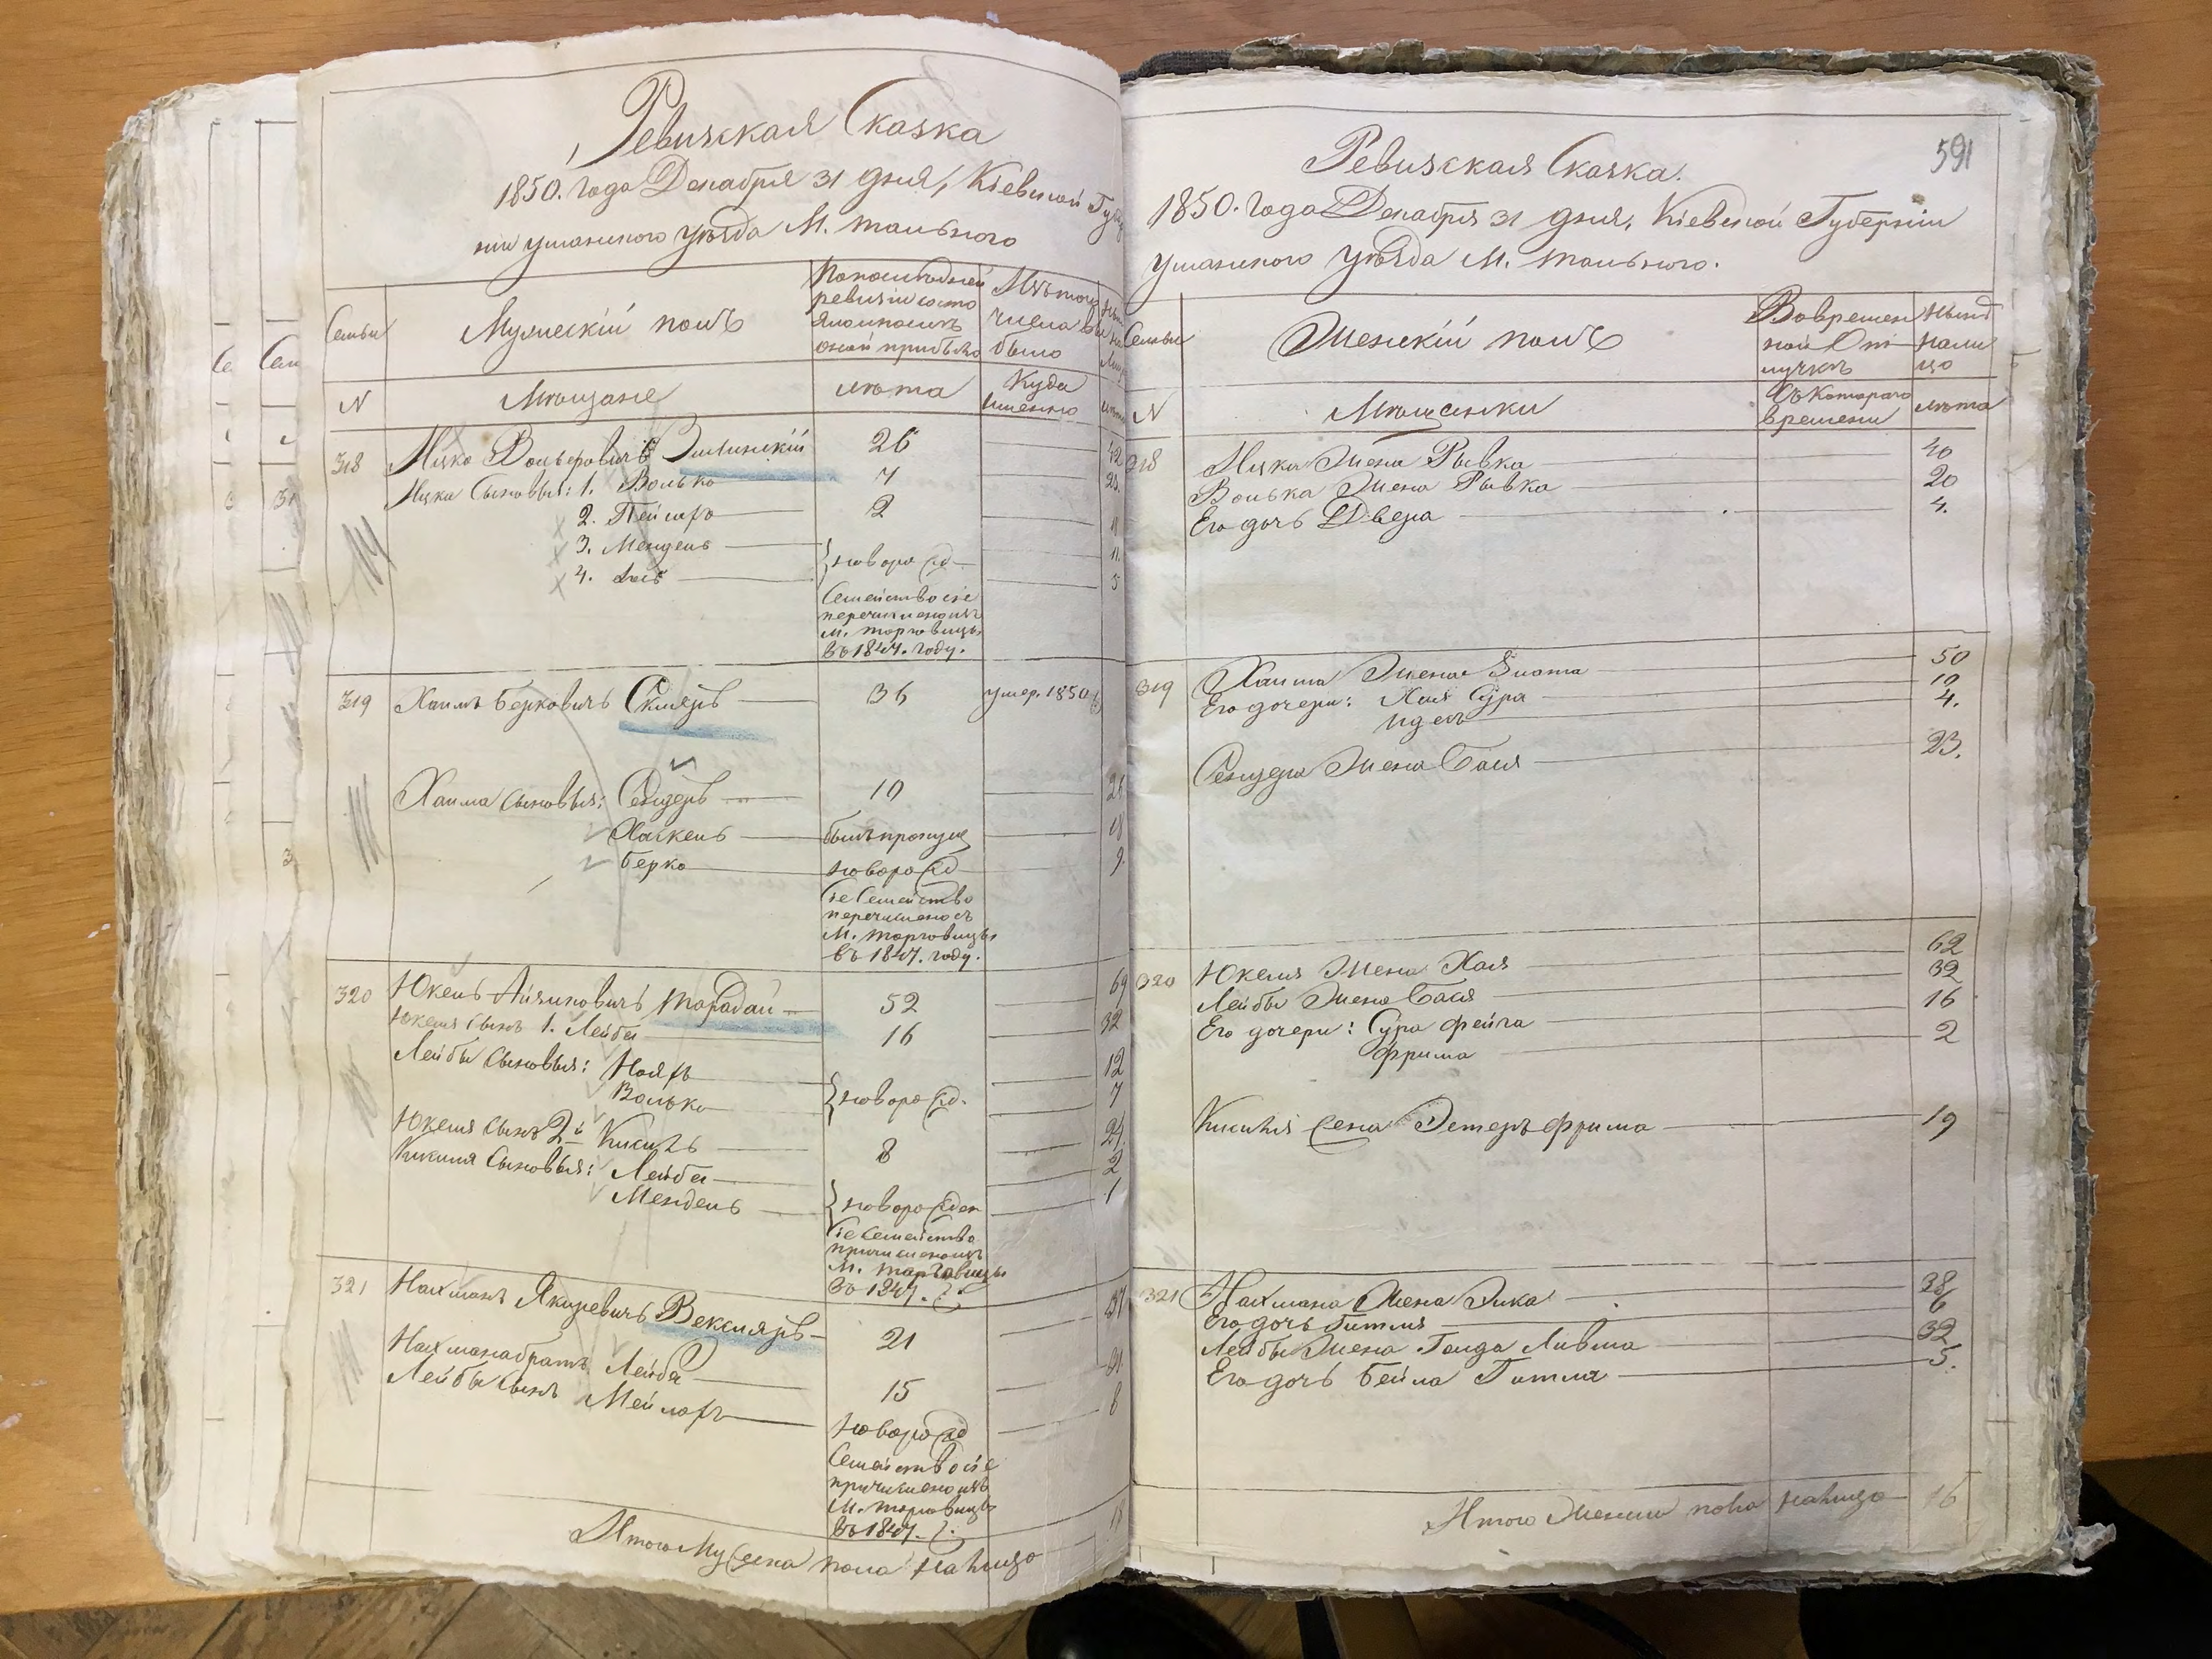 Ревизская Сказка
1850. года Декабря 31 дня, Кіевской Губер
ніи Уманского Уѣзда М. Тального
Семьи
Мужескій полъ
По последней
ревизіи состо
яло и после
оной прибыло
Изъ того
числа вы
было
N
Мѣщане
лѣта
Куда
именно
лѣта
318 Ицко Вольфовичъ 26 42
Ицка Сыновья: 1. Волько 7 23.
2. Пейсахъ 2
3. Мендель 11.
4. Лейб новорожд 5
Семейство сіе
перечислено изъ
м. Торговицы
въ 1847. году.
319 Хаимъ Берковичъ Скляръ 36 умер. 1850
Хаима Сыновья: Сендеръ 10 26
Хаскель былъ пропущ 18
Берко новорожд 9.
Сіе Семейство
перечислено съ
М. Торговицы
въ 1847. году.
320 Юкель Айзиковичъ Тарадай 52 69
Юкеля Сынъ 1. Лейба 16 32
Лейбы Сыновья: Нояхъ 12
Волько новорожд. 7
Юкеля Сынъ 2й Кисиль 8 24.
Кисиля Сыновья: Лейба 2
Мендель новорожден 1
Сіе Семейство
причислено изъ
М. Торговицы
въ 1847. г.
321 Нахманъ Якиревичъ Векслярь 21 37
Нахмана братъ Лейба 15 31.
Лейбы Сынъ Мейлахъ новорожд 8
Семейство сіе
причислено изъ
М. Торговицы
въ 1847. г.
Итого Мужеска пола налицо 18
591
Ревизская Сказка.
1850. года Декабря 31 дня, Кіевской Губерніи
Уманского Уѣзда М. Тального.
Семьи
Женскій полъ
Во времен
ной От
лучкѣ
Нынѣ
нали
цо
N
Мѣщанки
Съ Котораго
времени
лѣта
318 Ицки Жена Рывка 40
Волька Жена Рывка 20
Его дочь Двера 4.
319 Хаима Жена Злата 50
Его дочери: Хая Сура 19
Идесъ 4.
Сендера Жена Бася 23.
320 Юкеля Жена Хая 62
Лейбы Жена Бася 32
Его дочери: Сура Фейга 16
Фрима 2
Кисиля Жена Эстеръ Фрима 19
321 Нахмана Жена Элка 38
Его дочь Гитля 6
Лейбы Жена Голда Ливша 32
Его дочь Бейла Гитля 5.
Итого Женска пола налицо 16